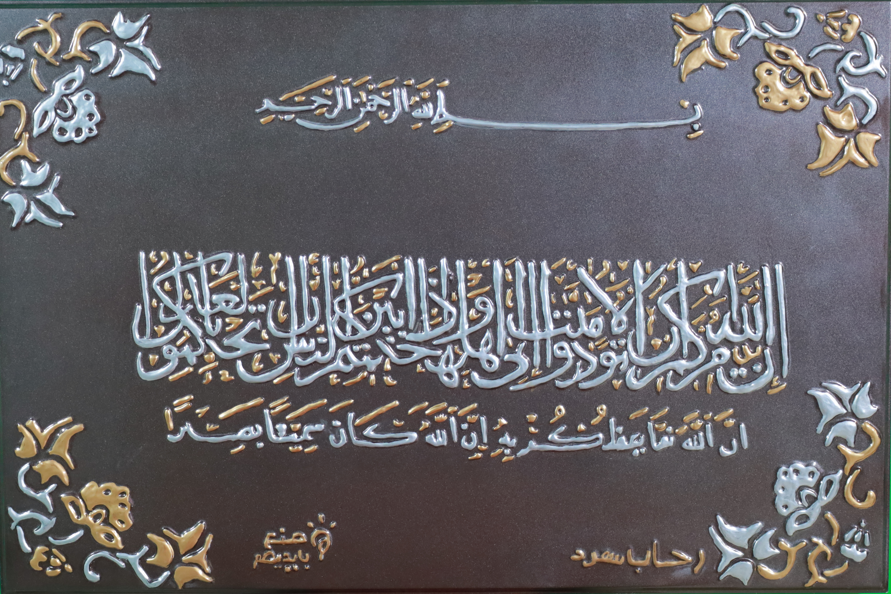 بسم الله الرحمن الرحيم
إن الله يأمركم أن تؤدوا الأمانات إلى أهلها وإذا حكمتم بين الناس أن تحكموا بالعدل
إن الله نعما يعظكم به إن الله كان سميعا بصيرا
رحاب سرد
صنع